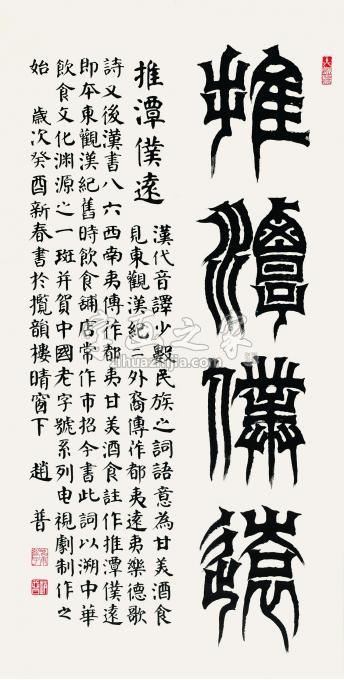 推潭僕遠
推潭僕遠
漢代音譯少數民族之詞語意為甘美酒食
見東觀漢紀二外裔傳作都夷遠夷樂德歌
詩又後漢書八六西南夷傳作都夷甘美酒食註作推潭僕遠
即本東觀漢紀舊時飲食舖店常作市招今書此詞以溯中華
飲食文化淵源之一斑并賀中國老字號系列电視劇制作之
始 歲次癸酉新春書於攬韻樓晴窗下 趙普